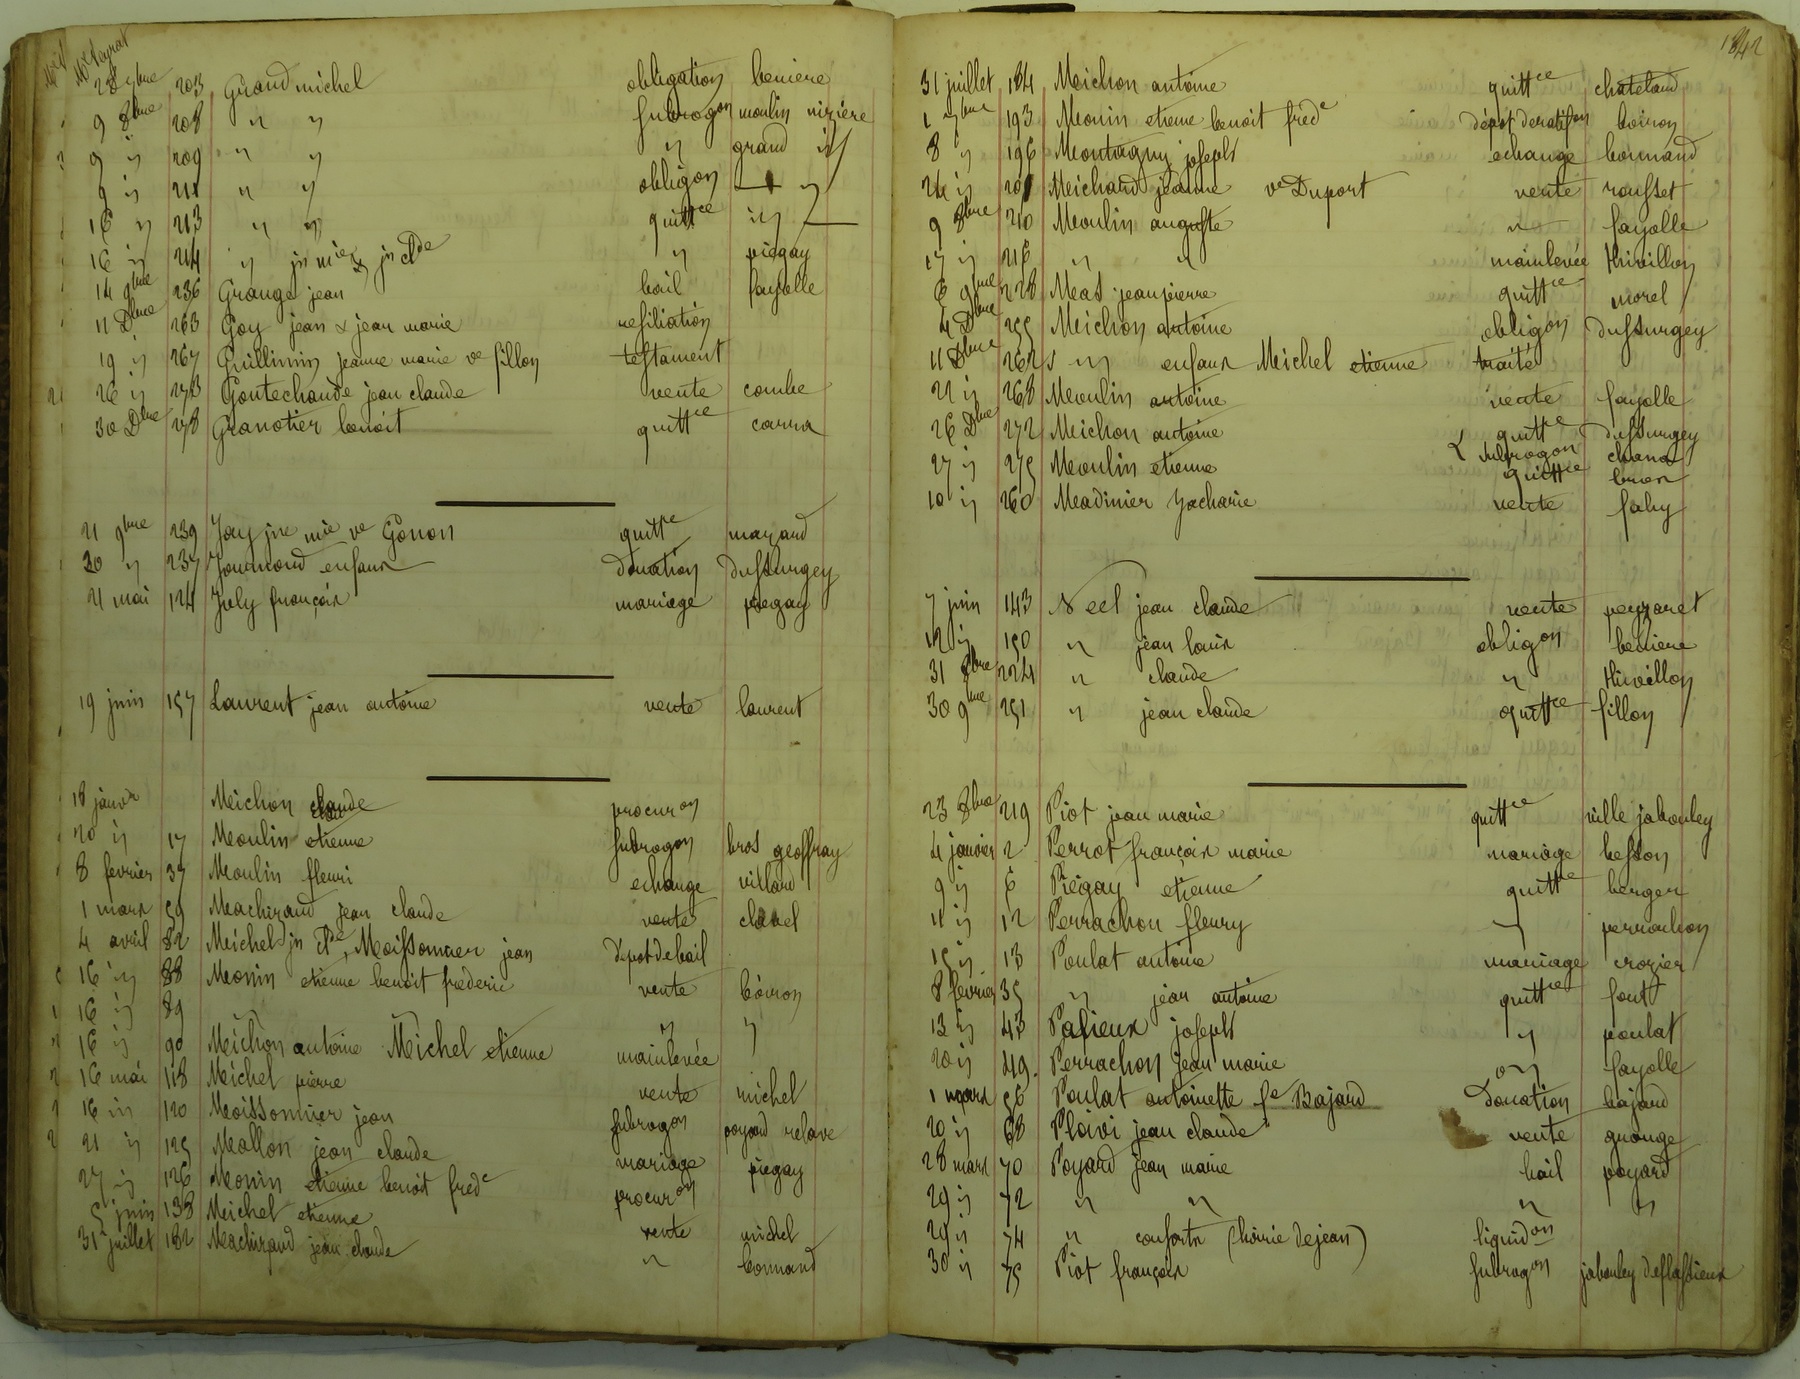 Me Peyrat
28 7bre 203 Grand michel obligation beniere
9 8bre 208 " " subrogon moulin vizière
9 id 209 " " " grand
9 id 211 " " obligon
16 " 213 " " quittce
16 id 214 " jn mie & jn Cde " piegay
14 9bre 236 Grange jean bail fayolle
11 Dbre 263 Goy jean & jean marie resiliation
19 id 267 Guillimin jeanne marie ve fillon testament
26 id 273 Gontechaude jean claude vente combe
30 Dbre 278 Granotier benoit quittce carra
21 9bre 239 Jay jne mie ve Gonon quittce mazard
30 " 237 Joumond enfans donation dussurgey
21 mai 124 July françois mariage piegay
19 juin 157 Laurent jean antoine vente laurent
18 janvr Meichon claude procuron
20 id 17 Moulin etienne subrogon bros geoffray
8 fevrier 37 Moulin fleuri echange villard
1 mars 59 Machirand jean claude vente clavel
4 avril 82 Michel jn Cde, Moissonnier jean depot de bail
16 id 88 Monin etienne benoit frederic vente boiron
16 id 89 " " "
16 id 90 Michon antoine Michel etienne mainlevée
16 mai 118 Michel pierre vente michel
16 id 120 Moissonnier jean subrogon poyard relave
21 id 125 Mallon jean claude mariage piegay
27 id 126 Monin etienne benoit frede procuron
5 juin 138 Michel etienne vente michel
31 juillet 182 Machirand jean claude " bonnand
1842
31 juillet 184 Meichon antoine quittce chateland
1 7bre 193 Monin etienne benoit frede dépôt de ratifon boiron
8 " 196 Montagny joseph echange bonnand
24 id 201 Meichard jeanne ve Duport vente rousset
9 8bre 210 Moulin auguste " fayolle
17 id 216 " " mainlevée thivillon
6 9bre 228 Mas jean pierre quittce morel
4 Dbre 255 Meichon antoine obligon dussurgey
11 Dbre 262 " enfans Michel etienne traité
21 id 268 Moulin antoine vente fayolle
26 Dbre 272 Meichon antoine quittce dussurgey
& subrogon chanas
27 id 275 Moulin etienne quittce brier
10 id 260 Madinier Zacharie vente faby
7 juin 143 Néel jean claude vente peyzaret
12 id 150 " jean louis obligon beniere
31 8bre 224 " claude " thivillon
30 9bre 251 " jean claude quittce fillon
23 8bre 219 Piot jean marie quittce ville jabouley
4 janvier 2 Perrot françois marie mariage besson
9 id 6 Piégay etienne quittce berger
11 id 12 Perrachon fleury " perrachon
15 id 13 Poulat antoine mariage crozier
8 fevrier 35 " jean antoine quittce font
13 id 43 Palieux joseph " poulat
20 id 49 Perrachon jean marie fayolle
1 mars 56 Poulat antoinette fe Bajard Donation bajard
20 id 68 Ploivi jean claude vente grange
28 mars 70 Poyard jean marie bail poyard
29 id 72 " " " "
29 id 74 " consorts (hoirie de jean) liquidon
30 id 75 Piot françois subrogon jabouley deflassieux